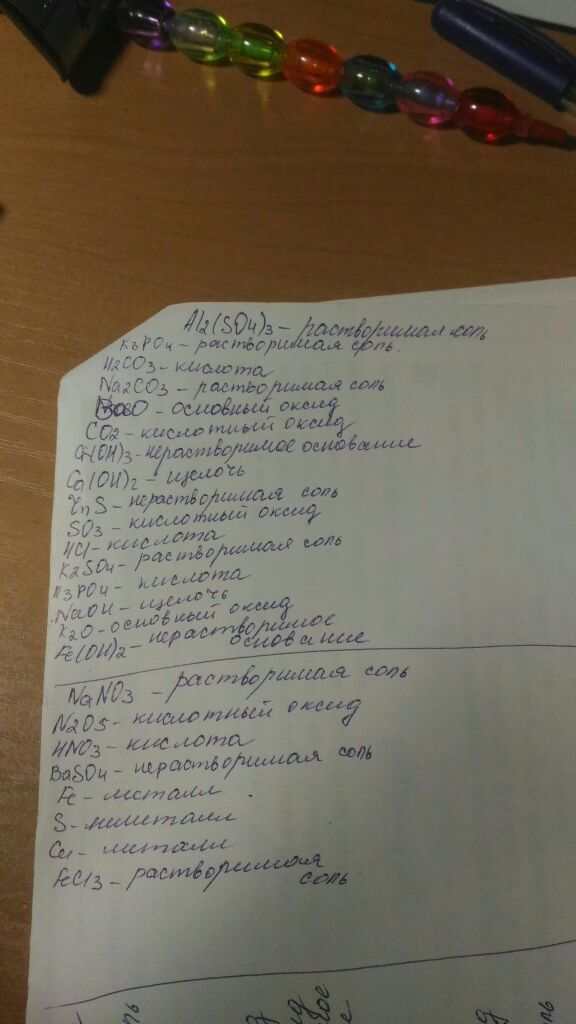 Al2(SO4)3 – растворимая соль
K3PO4 – растворимая соль.
H2CO3 – кислота
Na2CO3 – растворимая соль
BaO – основный оксид
CO2 – кислотный оксид
Cr(OH)3 – нерастворимое основание
Ca(OH)2 – щелочь
ZnS – нерастворимая соль
SO3 – кислотный оксид
HCl – кислота
K2SO4 – растворимая соль
H3PO4 – кислота
NaOH – щелочь
K2O – основный оксид
Fe(OH)2 – нерастворимое
основание
NaNO3 – растворимая соль
N2O5 – кислотный оксид
HNO3 – кислота
BaSO4 – нерастворимая соль
Fe – металл
S – неметалл
Cu – металл
FeCl3 – растворимая
соль